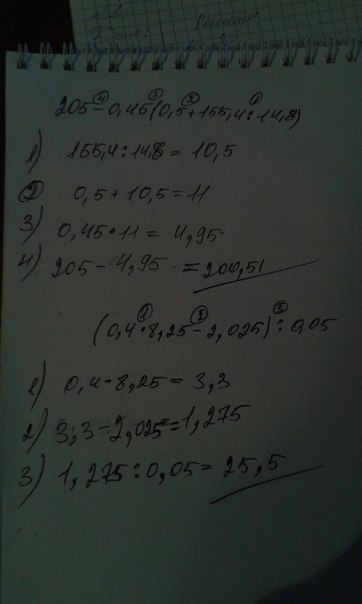 205-0,45(0,5+155,4:14,8)
1) 155,4:14,8=10,5
2) 0,5+10,5=11
3) 0,45·11=4,95
4) 205-4,95=200,51
(0,4·8,25-2,025):0,05
1) 0,4·8,25=3,3
2) 3,3-2,025=1,275
3) 1,275:0,05=25,5